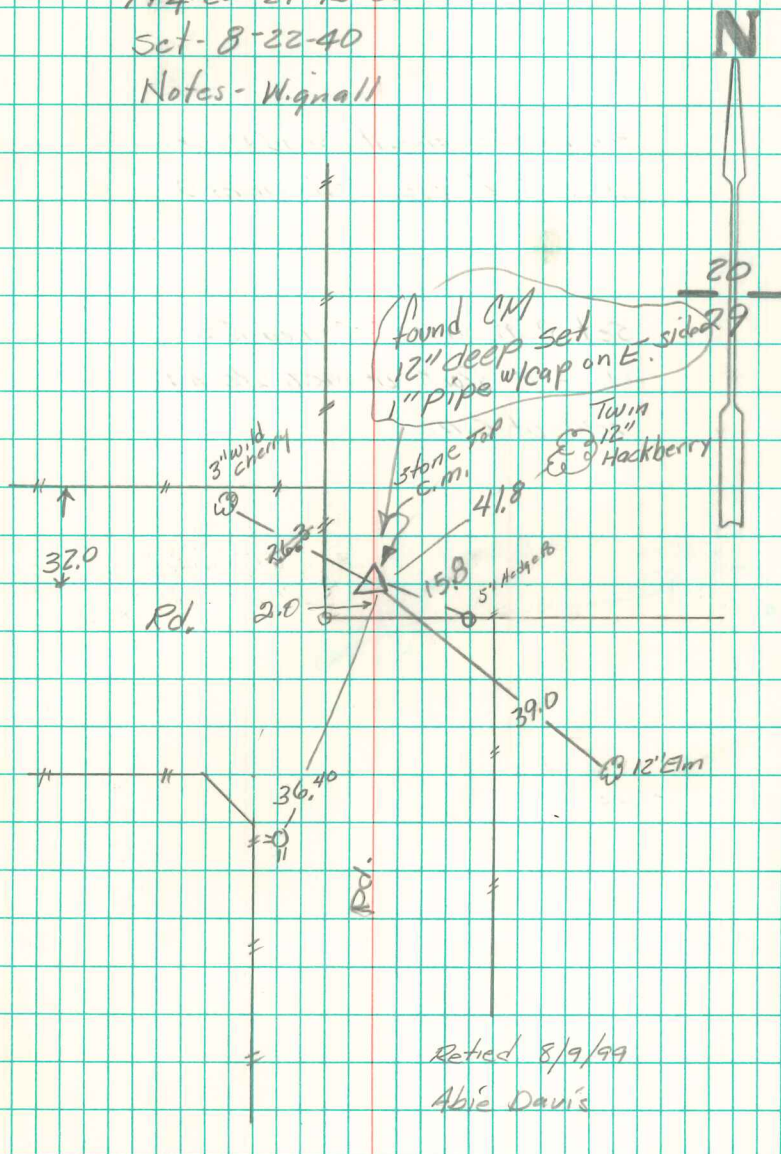 Set- 8-22-40
Notes- Wignall
N
20
29
found CM
12" deep set
1" pipe w/cap on E. side
Twin
12"
Hackberry
3" wild
cherry
Stone Top
C.M.
41.8
26.3
32.0
15.8
5" Hedge
Rd.
2.0
39.0
12" Elm
36.40
Rd.
Retied 8/9/99
Abie Davis